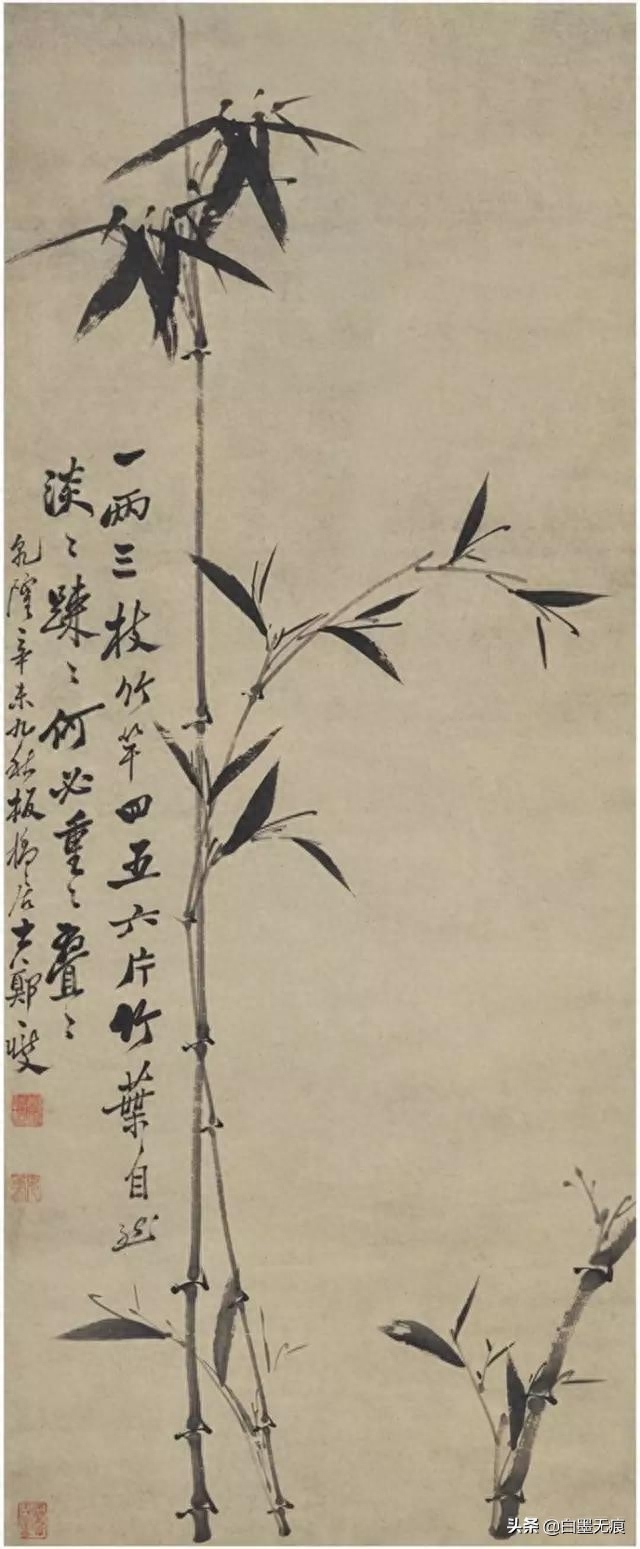 一兩三枝竹竿四五六片竹葉自然
淡〻疎〻何必重〻疊〻
乾隆辛未九秋板橋居士鄭燮
头条 @白墨无痕